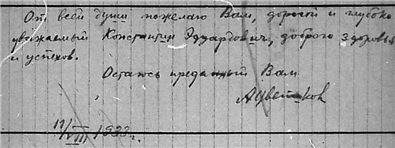 От всей души пожелаю Вам, дорогой и глубоко
уважаемый Константин Эдуардович, доброго здоровья
и успехов.
Остаюсь преданный Вам
А Цветиков
11/VIII 1933 г.